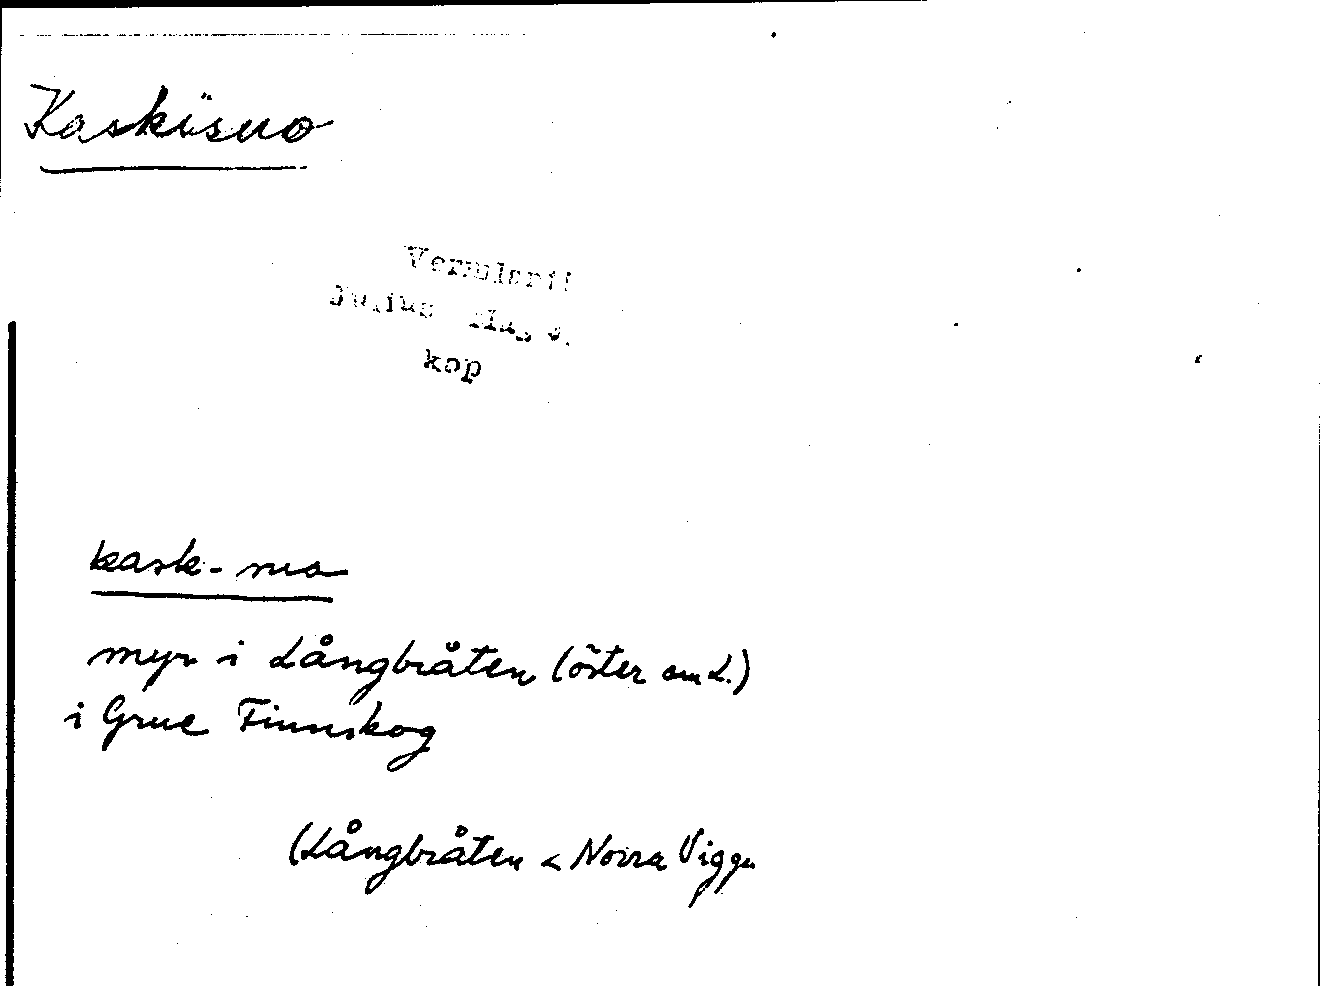 Kaskisuo
Vermlanti
Julius Mäg
kop
kask-suo
myr i Långbråten (öster om L.)
i Grue Finnskog
(Långbråten < Norra Viggen